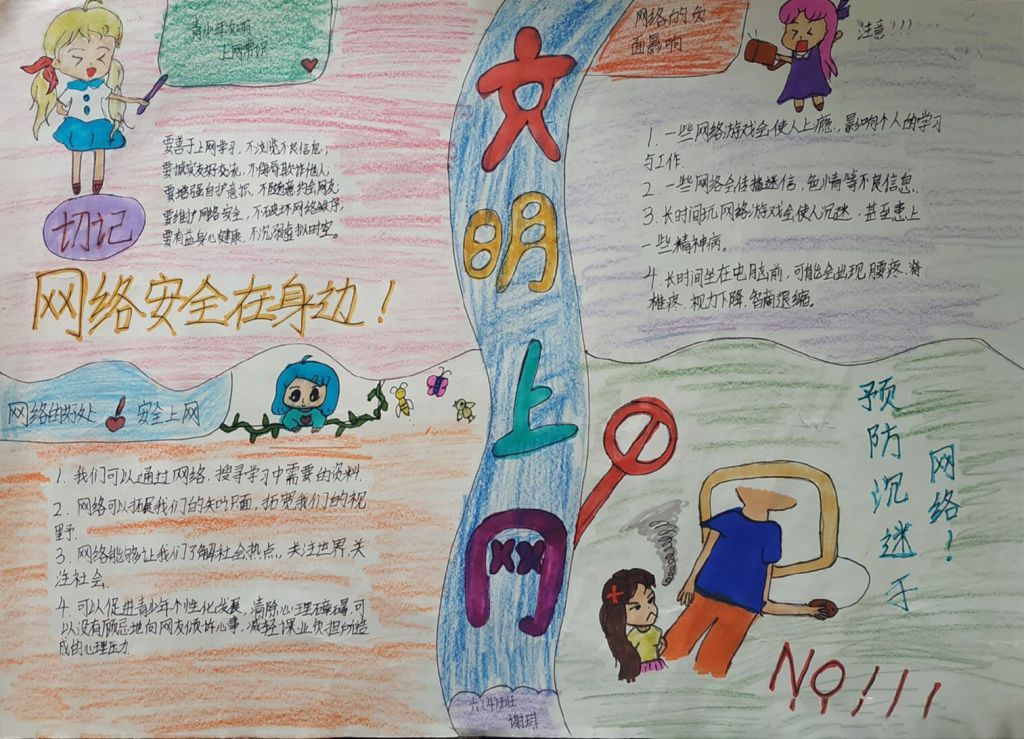 青少年文明
上网常识
要善于上网学习，不浏览不良信息，
要诚实友好交流，不侮辱欺诈他人，
要增强自护意识，不随意约会网友
要维护网络安全，不破坏网络秩序，
要有益身心健康，不沉溺虚拟时空。
切记
网络安全在身边！
网络的好处
安全上网
1. 我们可以通过网络. 搜寻学习中需要的资料.
2. 网络可以拓展我们的知识面，拓宽我们的视
野.
3. 网络能够让我们了解社会热点，关注世界,关
注社会.
4. 可以促进青少年个性化发展，清除心理障碍,可
以没有顾忌地向网友倾诉心事，减轻课业负担所造
成的心理压力.
文明上网
六(4)班
谢琪
网络的负
面影响
注意!!!
1. 一些网络游戏会使人上瘾，影响个人的学习
与工作.
2. 一些网络会传播迷信，色情等不良信息.
3. 长时间玩网络游戏会使人沉迷，甚至患上
一些精神病。
4. 长时间坐在电脑前，可能会出现腰疼.脊
椎疼. 视力下降.智商退缩。
预防沉迷于
网络！
NO!!!